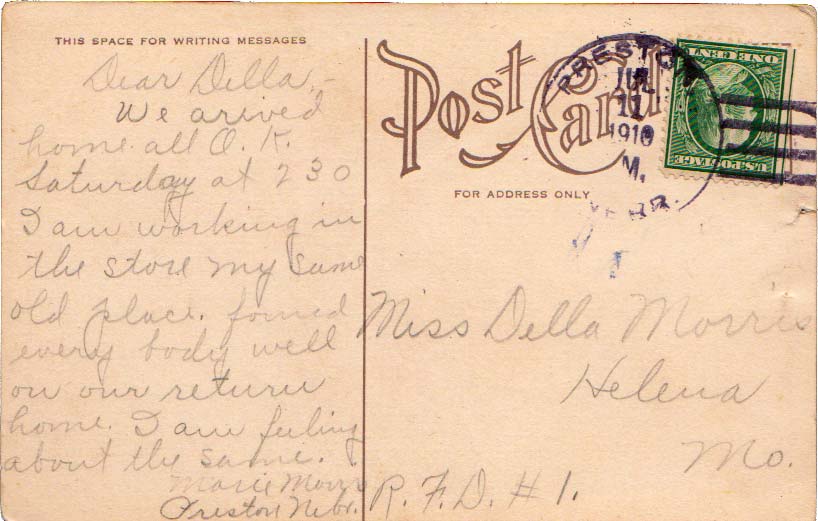 THIS SPACE FOR WRITING MESSAGES
Dear Della,-
We arived
home all O.K.
Saturday at 2 30
I am working in
the store my same
old place. founed
every body well
on our return
home. I am feeling
about the same.
Marie Morris
Preston Nebr.
Post Card
FOR ADDRESS ONLY
PRESTON
JUL
11
1910
M.
NEBR.
U.S. POSTAGE
ONE CENT
Miss Della Morris
Helena
Mo.
R. F. D. # 1.